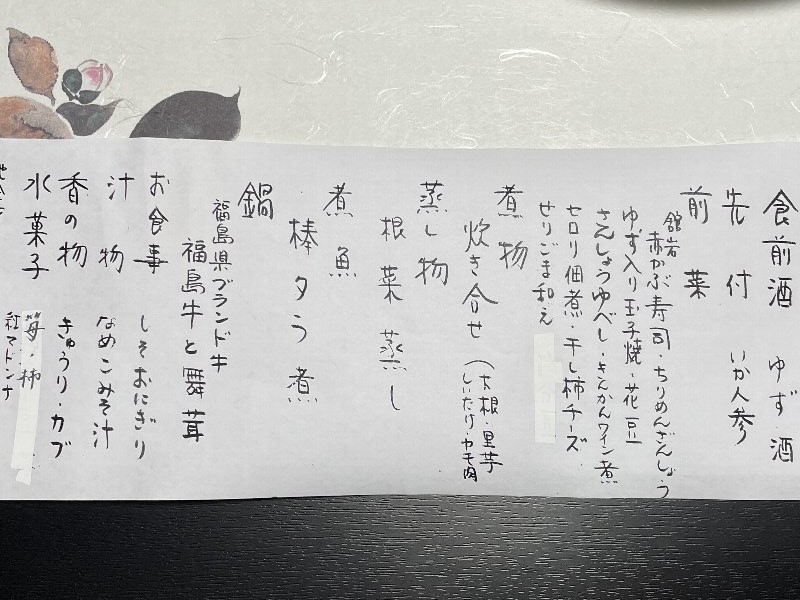 食前酒 ゆず酒
先付 いか人参
前菜
舘岩
赤かぶ寿司・ちりめんざんしょう
ゆず入り玉子焼・花豆
さんしょうゆべし・きんかんワイン煮
セロリ佃煮・干し柿チーズ
せりごま和え
煮物
炊き合せ(大根・里芋
しいたけ・カモ肉
蒸し物
根菜蒸し
煮魚
棒タラ煮
鍋
福島県ブランド牛
福島牛と舞茸
お食事 しそおにぎり
汁物 なめこみそ汁
香の物 きゅうり・カブ
水菓子 苺・柿
紅マドンナ